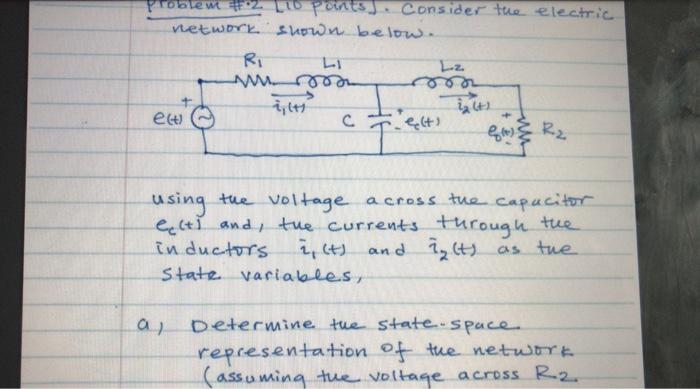 Problem #.2 [10 points]. Consider the electric
network shown below.
R1 L1 L2
i1(t) i2(t)
+ e(t) C + ec(t) - + e0(t) - R2
using the voltage across the capacitor
ec(t) and, the currents through the
inductors i1(t) and i2(t) as the
state variables,
a, Determine the state-space
representation of the network
(assuming the voltage across R2